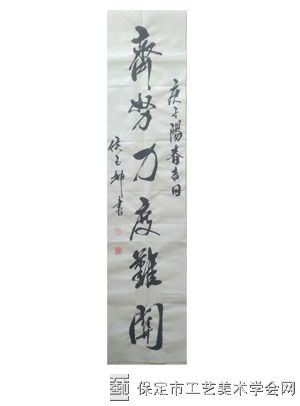 庚子陽春吉日
齊努力度難關
侯玉坤書
保定市工艺美术学会网